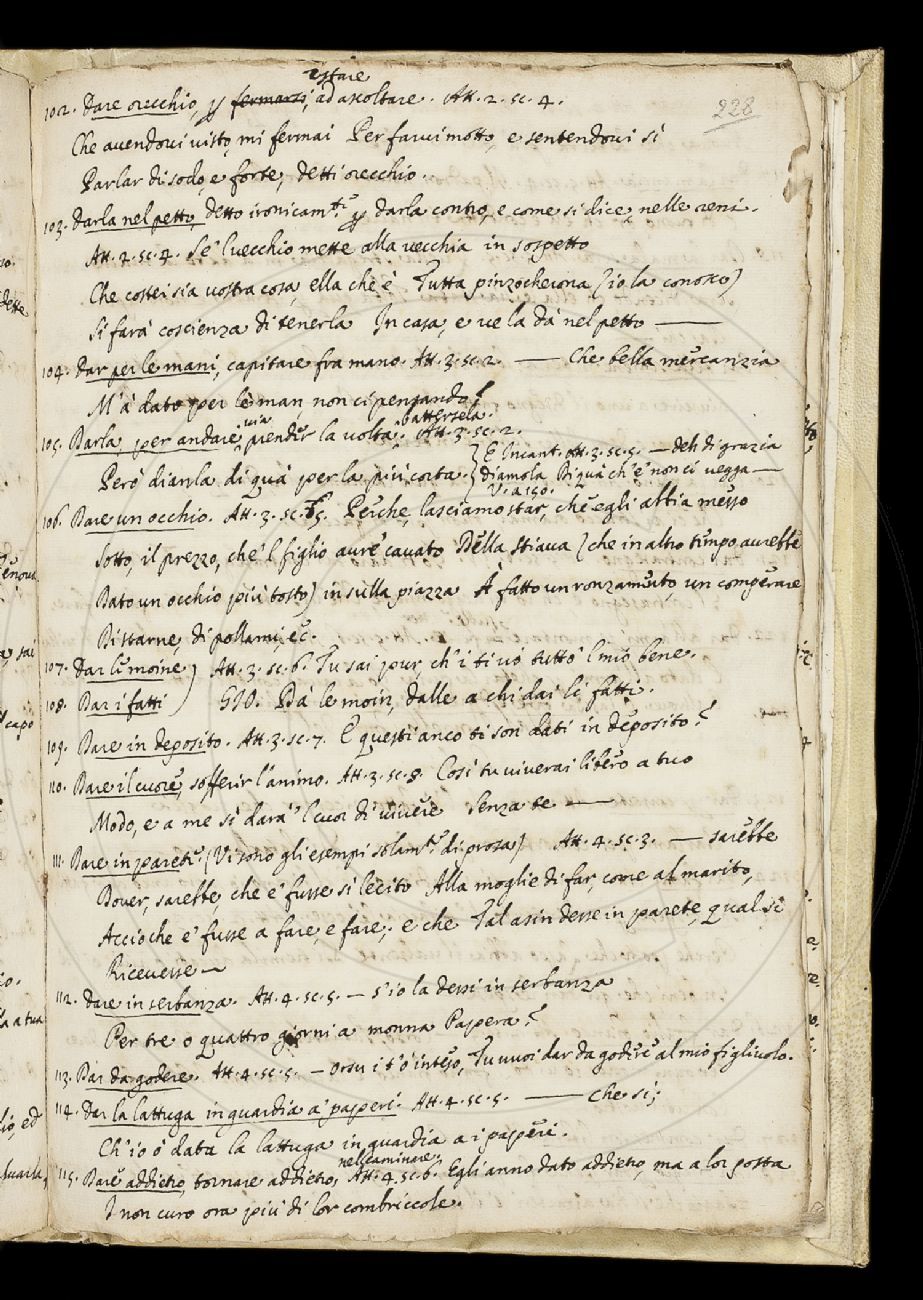 228
102. Dare orecchio, p fermarsi, istare ad ascoltare. Att. 2. sc. 4.
Che avendovi visto, mi fermai Per farvi motto, e sentendovi sì
Parlar di sodo, e forte, detti orecchio.
103. Darla nel petto, detto ironicam.te p darla contro, e come si dice, nelle reni.
Att. 2. sc. 4. Se 'l vecchio mette alla vecchia in sospetto
Che costei sia vostra cosa, ella che è Tutta pinzocherona (io la conosco)
Si farà coscienza di tenerla In casa, e ve la dà nel petto —
104. Dar per le mani, capitare fra mano. Att. 3. sc. 2. — Che bella mercanzia
M'à dato per le man, non ci pensando!
105. Darla, per andare via, prender la volta, battersela. Att. 3. sc. 2.
Però dianla di quà per la più corta. } E Incant. Att. 3. sc. 5. — deh di grazia
diamola Di quà ch'e' non ci vegga —
V. a 150.
106. Dare un occhio. Att. 3. sc. 5. Perche, lasciamo star, che egli abbia messo
Sotto, il prezzo, che 'l figlio avre' cavato Della stiava (che in altro tempo avrebbe
Dato un occhio più tosto) in sulla piazza À fatto un ronzamento, un comperare
Di starne, di pollami, ec.
107. Dar le moine ) Att. 3. sc. 6. Tu sai pur, ch'i ti vo' tutto 'l mio bene.
108. Dar i fatti ) GIO. Dà le moin, dalle a chi dai li fatti.
109. Dare in deposito. Att. 3. sc. 7. E questi anco ti son dati in deposito?
110. Dare il cuore, sofferir l'animo. Att. 3. sc. 8. Così tu viverai libero a tuo
Modo, e a me si darà 'l cuor di vivere Senza te —
111. Dare in parete. (Vi sono gli esempi solam.te di prosa) Att. 4. sc. 3. — sarebbe
Dover, sarebbe, che e' fusse sì lecito Alla moglie di far, come al marito,
Acciò che e' fusse a fare, e fare; e che Tal asin desse in parete, qual sì
Ricevesse —
112. Dare in serbanza. Att. 4. sc. 5. — s'io la dessi in serbanza
Per tre o quattro giorni a monna Papera?
113. Dar da godere. Att. 4. sc. 5. — Orsù i t'ò inteso, Tu vuoi dar da godere al mio figliuolo.
114. Dar la lattuga in guardia a' paperi. Att. 4. sc. 5. — Che sì;
Ch'io ò data la lattuga in guardia a i paperi.
115. Dare addietro, tornare addietro, nel caminare. Att. 4. sc. 6. Egli anno dato addietro, ma a lor posta
I non curo ora più di lor combriccole.